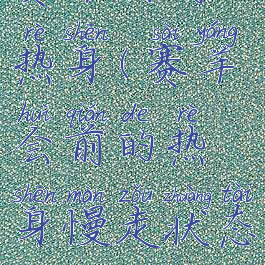 rè shēn sài yáng
热身(赛羊
huì qián de rè
会前的热
shēn màn zǒu zhuàng tài
身慢走状态